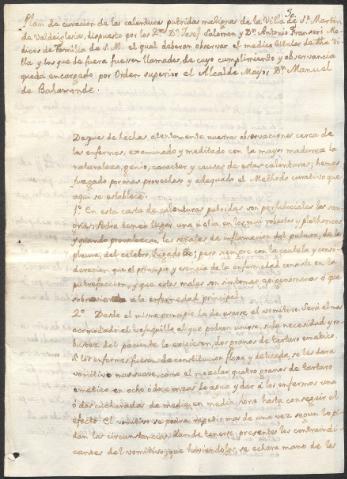 Plan de curacion de las calenturas putridas malignas de la Villa de Sn. Martin
de Valdeiglesias, dispuesto por los Dres. Dn. Josef Salomon y Dn. Antonio Franseri Me-
dicos de Familia de S.M. el qual deberan observar el medico titular de dha
Villa y los que de fuera fueren llamados, de cuyo cumplimiento y observancia
queda encargado por Orden superior el Alcalde Mayor Dn. Manuel
de Bahamonde.
Despues de hechas atentamente nuestras observaciones cerca de
los enfermos, examinado y meditado con la mayor madurez la
naturaleza, genio, caracter y causas de estas calenturas; hemos
juzgado por mas provechoso y adequado el Methodo curativo que
aqui se establece.
1o. En esta casta de calenturas putridas son perjudiciales las san-
grias: Podra tener lugar una u otra en los mui robustos, y plethoricos
y quando prevalezcan las señales de inflamacion del pulmon, de la
pleura, del celebro, higado &c; pero siempre con la cautela y consi-
deracion que el principio y esencia de la enfermedad consiste en la
putrefaccion, y que estos males son sintomas
a la enfermedad principal.
2o. Desde el mismo principio ha de usarse el vomitivo. Será el mas
acomodado el
del paciente lo exigieren, dos granos de tartaro emetico.
Si los enfermos fueren de constitucion floxa y delicada, se les dará
vomitivo mas suave, como el mezclar quatro granos de tartaro
emetico en ocho o doze onzas de agua y dar á los enfermos una
ó dos cucharadas de media en media ora hasta conseguir el
efecto. El vomitivo se podrá repetir mas de una vez segun lo pi-
dan las circunstancias, dande tener presentes los contraindi-
cantes del vomitivo, que haviendolos, se echará mano de los